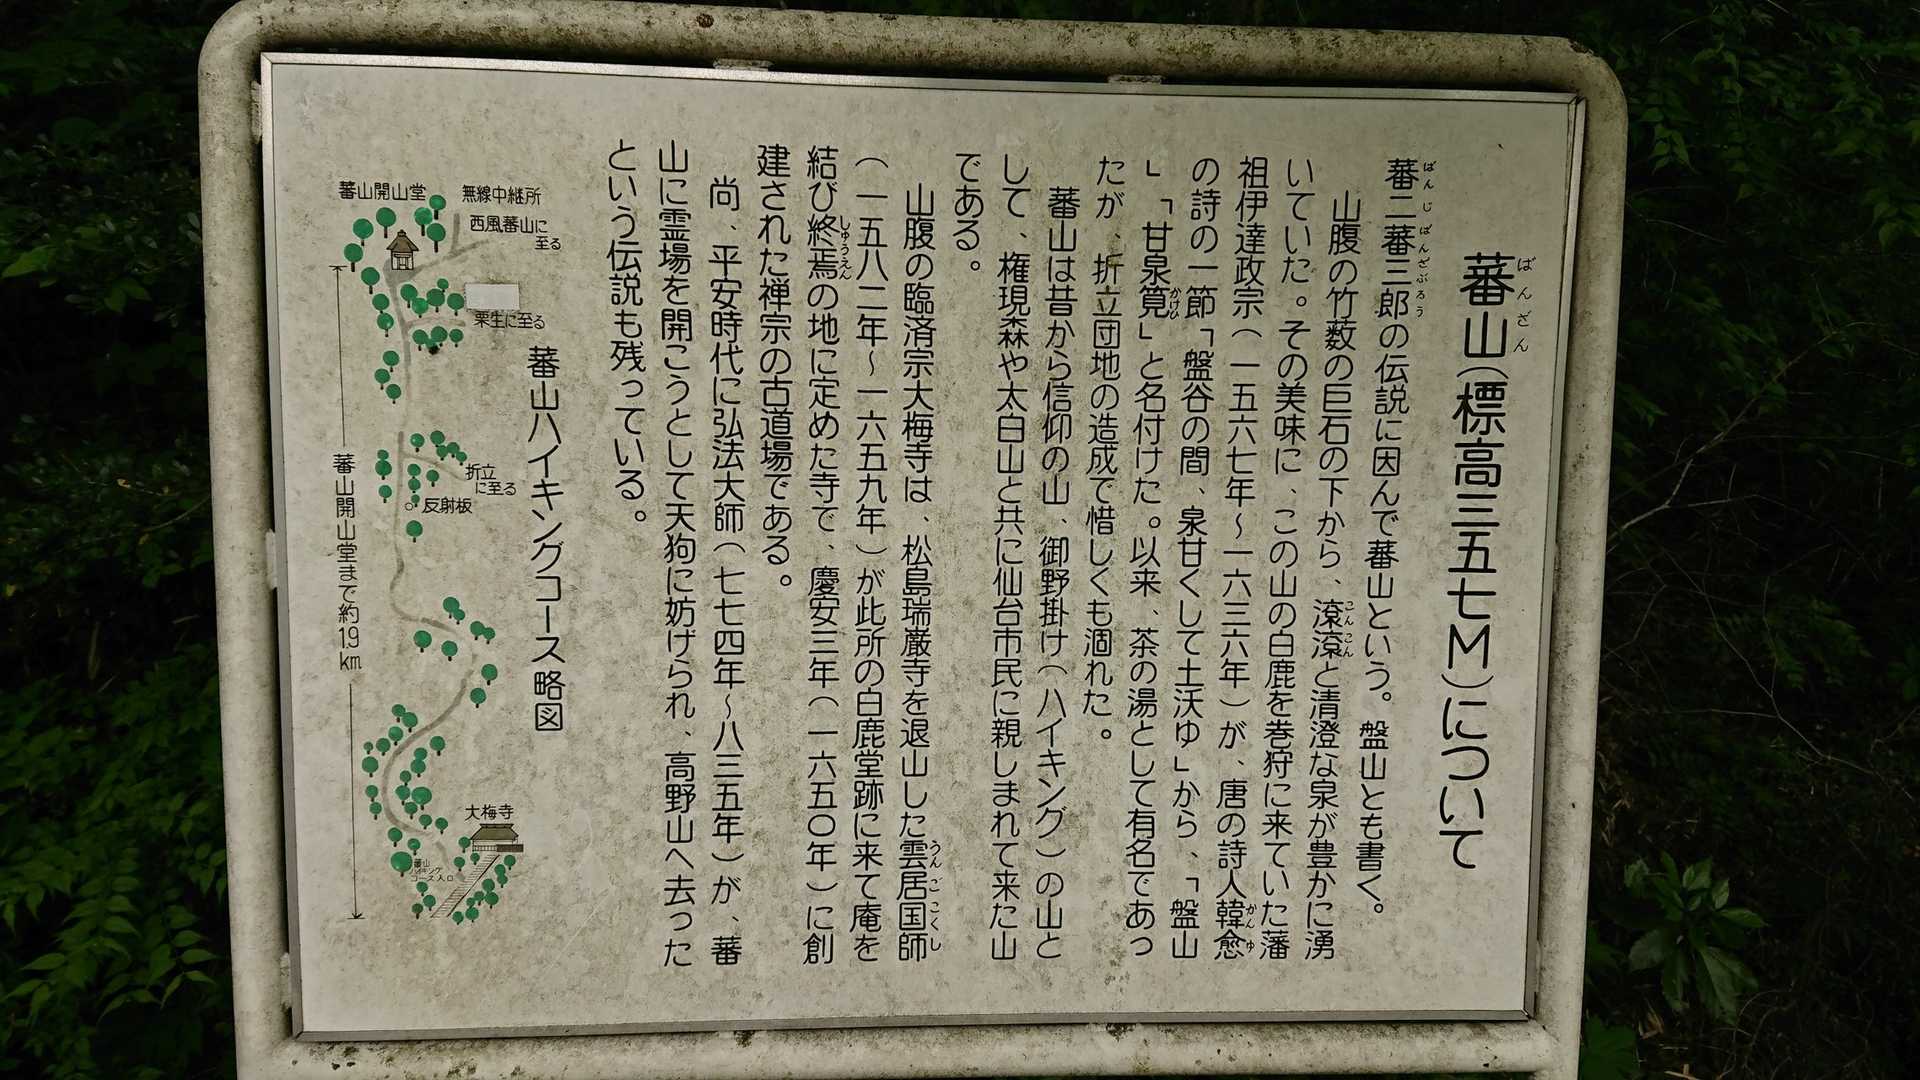 蕃山(標高三五七M)について
ばんざん
蕃二蕃三郎の伝説に因んで蕃山という。盤山とも書く。
ばんじ ばんざぶろう
山腹の竹薮の巨石の下から、滾滾と清澄な泉が豊かに湧
こんこん
いていた。その美味に、この山の白鹿を巻狩に来ていた藩
祖伊達政宗(一五六七年~一六三六年)が、唐の詩人韓愈
かんゆ
の詩の一節「盤谷の間、泉甘くして土沃ゆ」から、「盤山
」「甘泉筧」と名付けた。以来、茶の湯として有名であっ
かけひ
たが、折立団地の造成で惜しくも涸れた。
蕃山は昔から信仰の山、御野掛け(ハイキング)の山と
して、権現森や太白山と共に仙台市民に親しまれて来た山
である。
山腹の臨済宗大梅寺は、松島瑞厳寺を退山した雲居国師
うんごこくし
(一五八二年~一六五九年)が此所の白鹿堂跡に来て庵を
結び終焉の地に定めた寺で、慶安三年(一六五〇年)に創
しゅうえん
建された禅宗の古道場である。
尚、平安時代に弘法大師(七七四年~八三五年)が、蕃
山に霊場を開こうとして天狗に妨げられ、高野山へ去った
という伝説も残っている。
蕃山ハイキングコース略図
無線中継所
西風蕃山に
至る
蕃山開山堂
栗生に至る
折立
に至る
反射板
蕃山開山堂まで約1.9km
大梅寺
蕃山
ハイキング
コース入口